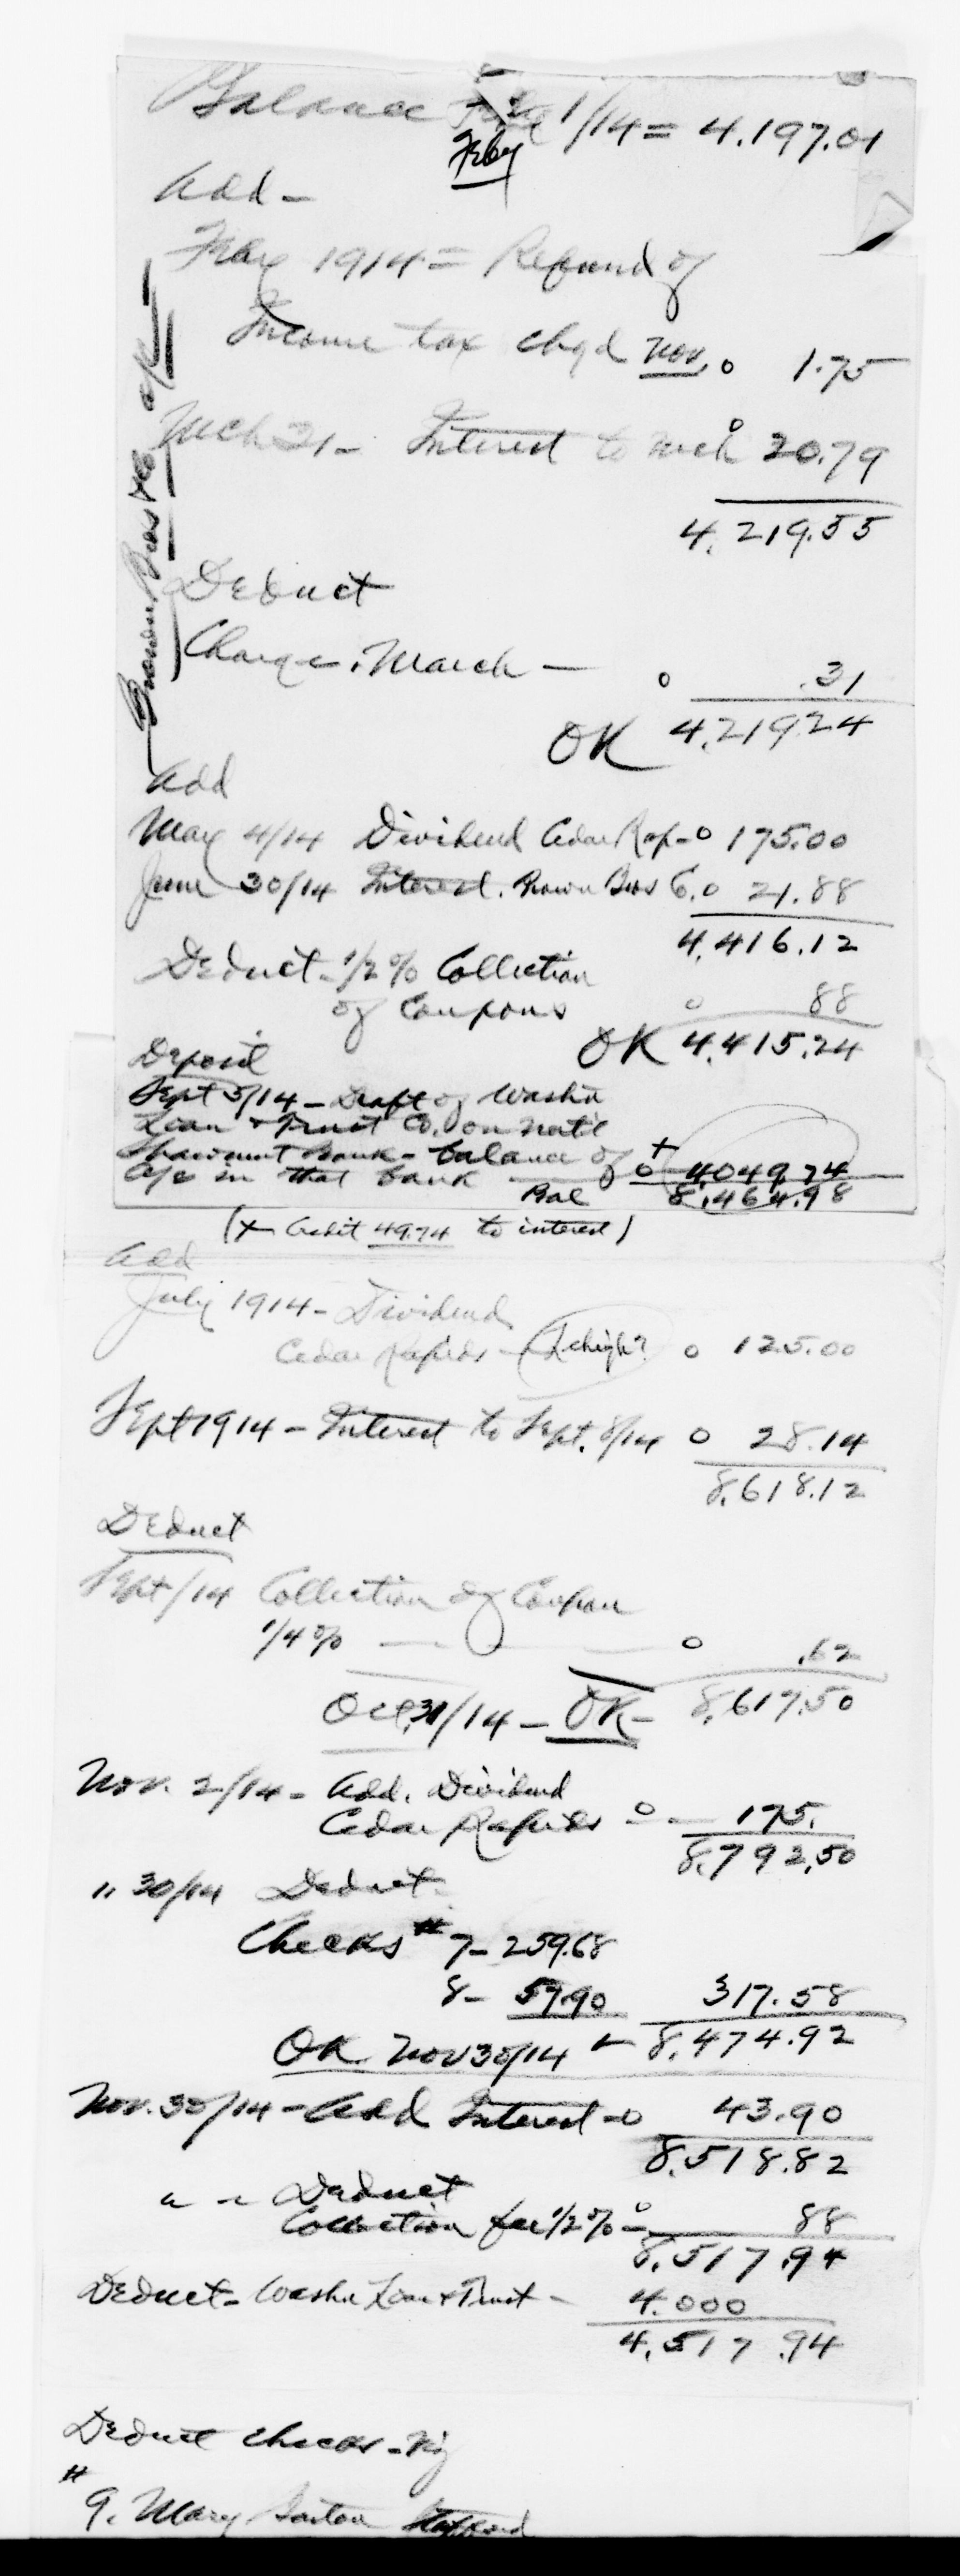 Balance 1/14 = 4,197.01
Feby
Add -
Feby 1914 = Refund of
Income tax chgd Nov. o 1.75
Mch 21 - Interest to Mch o 20.79
4,219.55
Deduct
Charge. March - o .31
OK 4,219.24
Brown Bros & Co a/c
Add
May 4/14 Dividend Cedar Rap - o 175.00
June 30/14 Interest. Brown Bros C. o 21.88
4,416.12
Deduct - 1/2 % Collection
of Coupons o 88
OK 4,415.24
Deposit
Sept 5/14 - Draft of Washn
Loan & Trust Co. on Nat'l
Bank - balance of +
a/c in that bank o 4,049.74
Bal 8,464.98
(+ Credit 49.74 to interest)
Add
July 1914 - Dividend
Cedar Rapids - (Lehigh?) o 125.00
Sept 1914 - Interest to Sept. 8/14 o 28.14
8,618.12
Deduct
Sept/14 Collection of Coupon
1/4 % — — — o .62
Oct 31/14 - OK - 8,617.50
Nov. 2/14 - Add. Dividend
Cedar Rapids - o - 175.
8,792.50
" 30/14 Deduct.
Checks # 7 - 259.68
8 - 57.90 317.58
OK Nov 30/14 8,474.92
Nov. 30/14 - Add Interest - o 43.90
8,518.82
" " Deduct
Collection fee 1/2 % - o 88
8,517.94
Deduct - Washn Loan & Trust - 4.000
4,517.94
Deduct checks -
#
9. Mary Barton Stafford